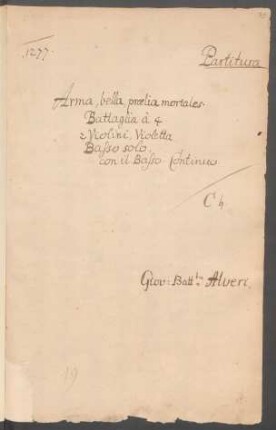 1277.
Partitura
Arma, bella, prœlia mortales.
Battaglia â 4
2 Violini, Violetta
Basso solo.
con il Basso Continuo
C h
Giov: Batt: Alveri
19